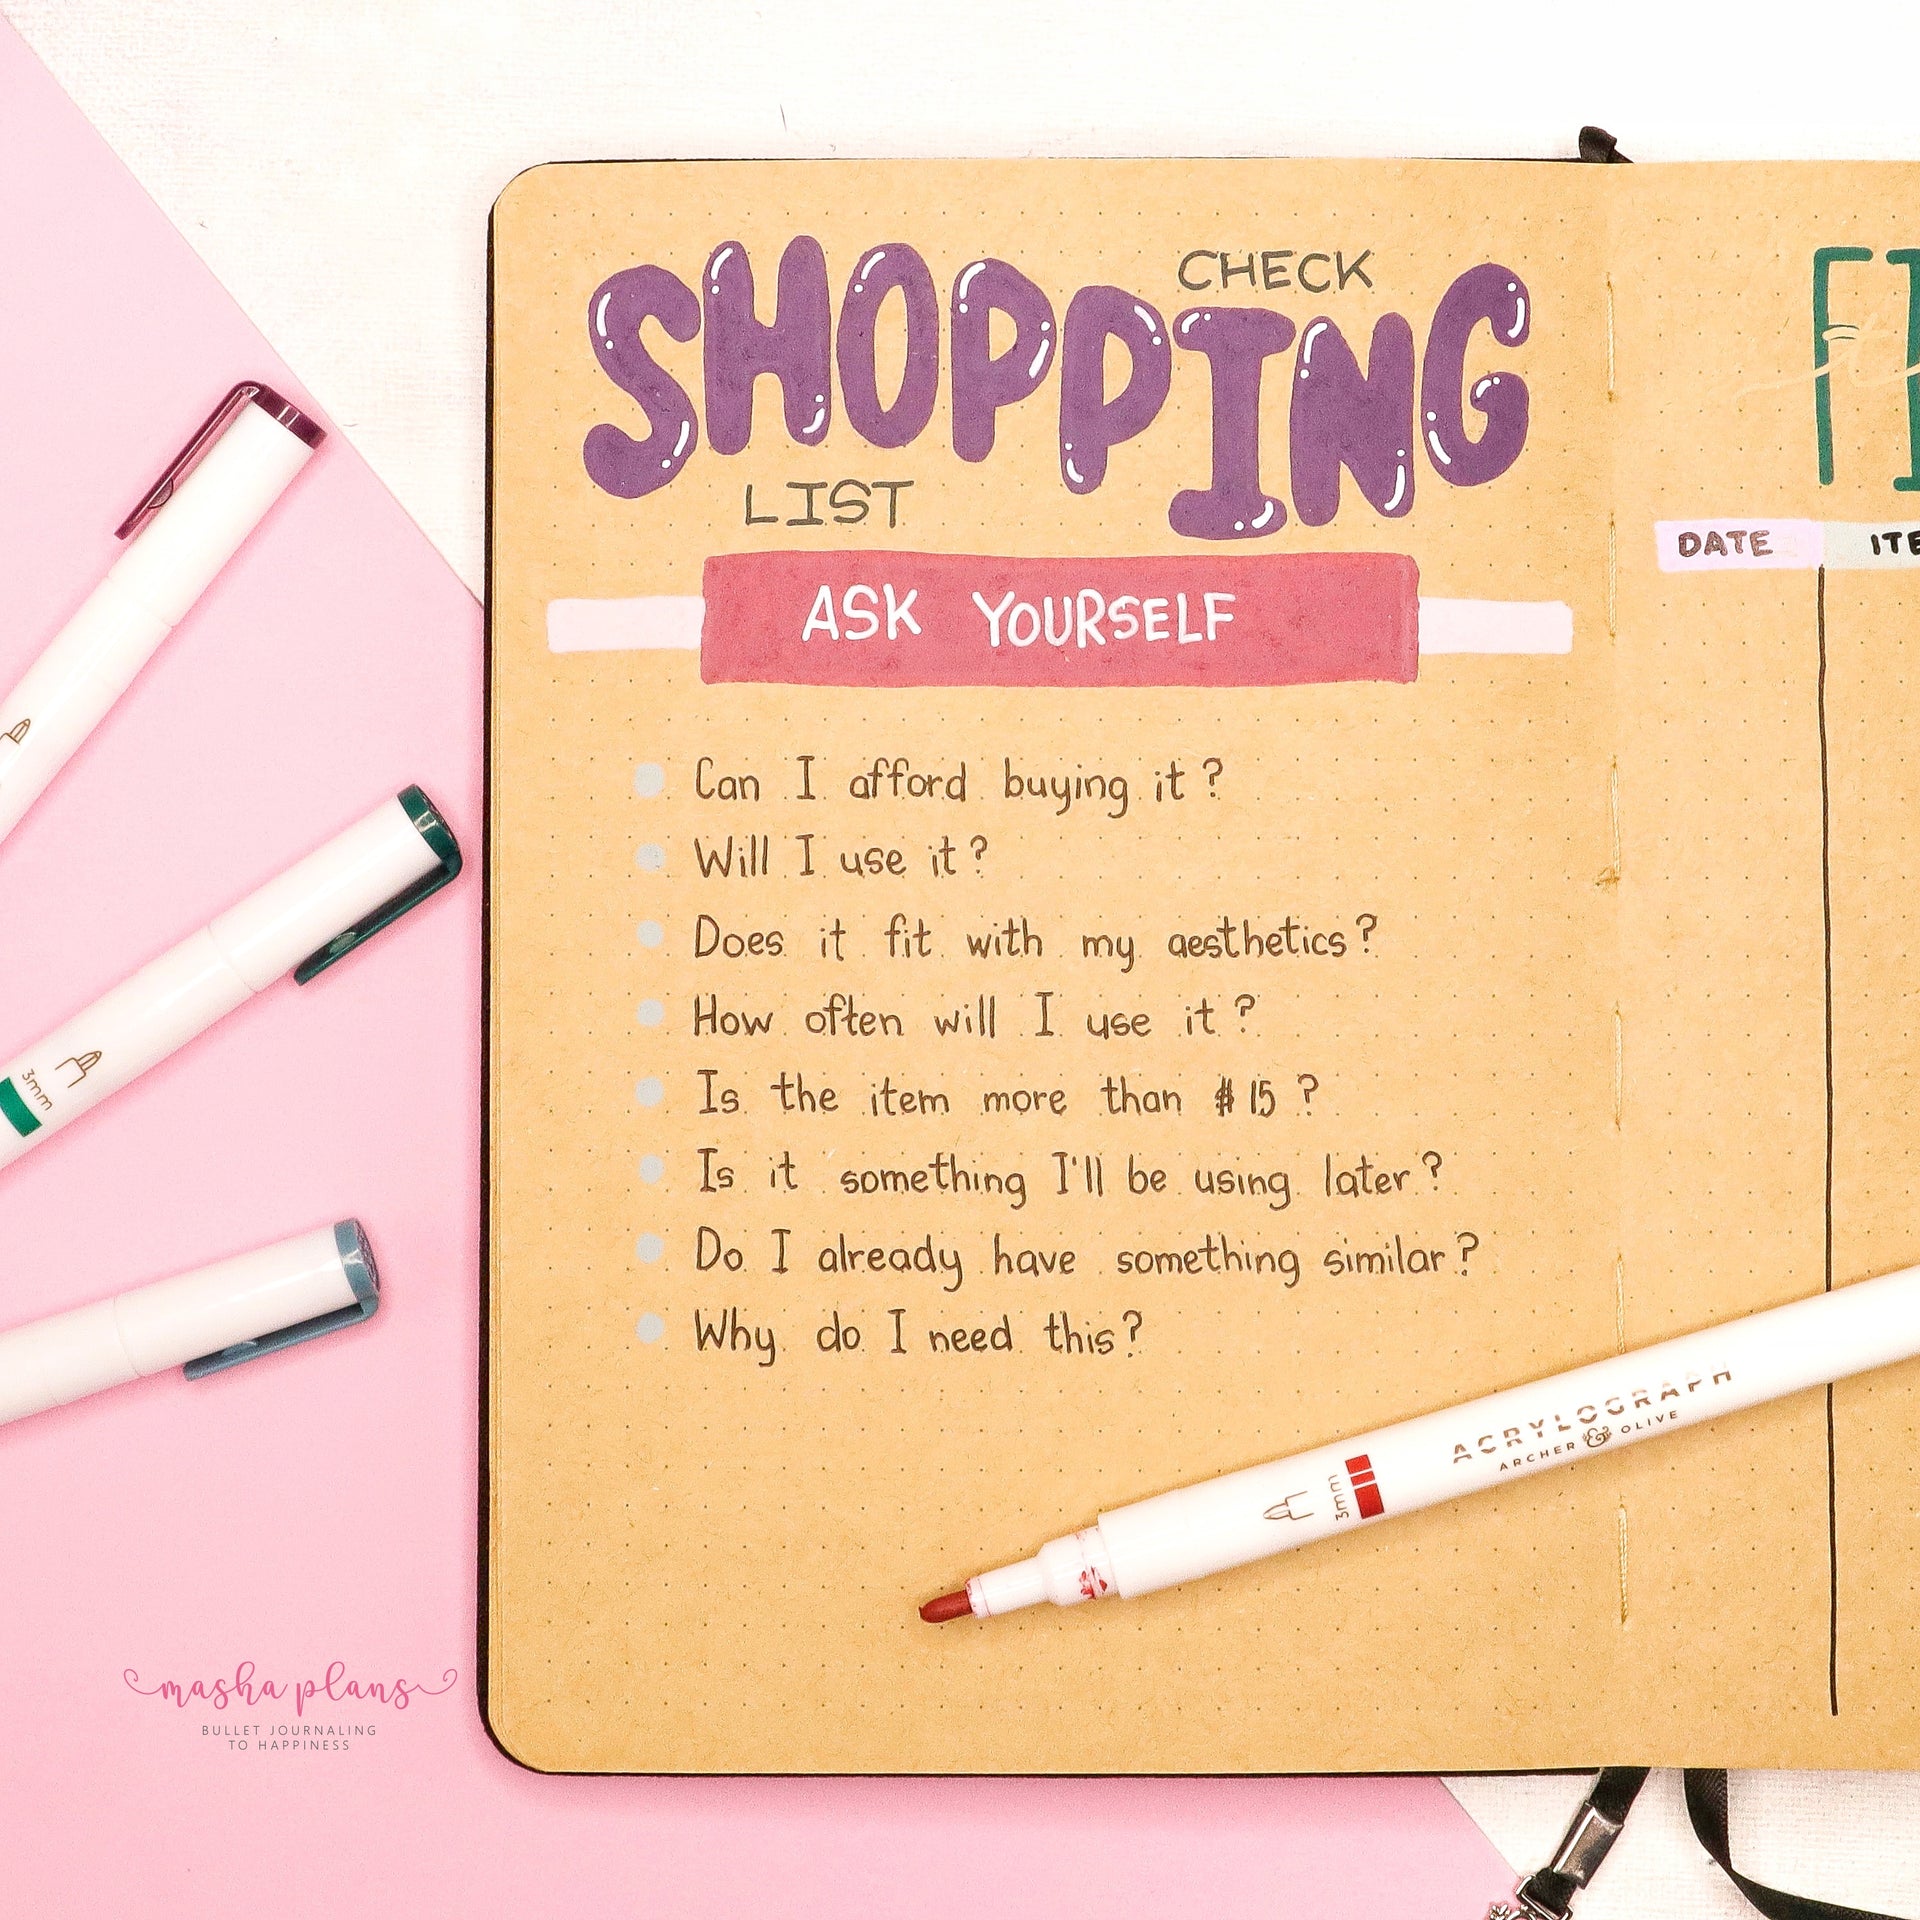 CHECK
SHOPPING
LIST
ASK YOURSELF
Can I afford buying it?
Will I use it?
Does it fit with my aesthetics?
How often will I use it?
Is the item more than $15?
Is it something I'll be using later?
Do I already have something similar?
Why do I need this?
DATE
3mm
3mm
ACRYLOGRAPH
ARCHER & OLIVE
masha plans
BULLET JOURNALING
TO HAPPINESS